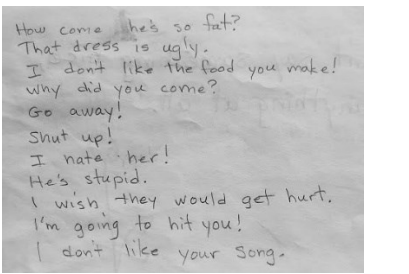 How come he's so fat?
That dress is ugly.
I don't like the food you make!
Why did you come?
Go away!
Shut up!
I hate her!
He's stupid.
I wish they would get hurt.
I'm going to hit you!
I don't like your song.